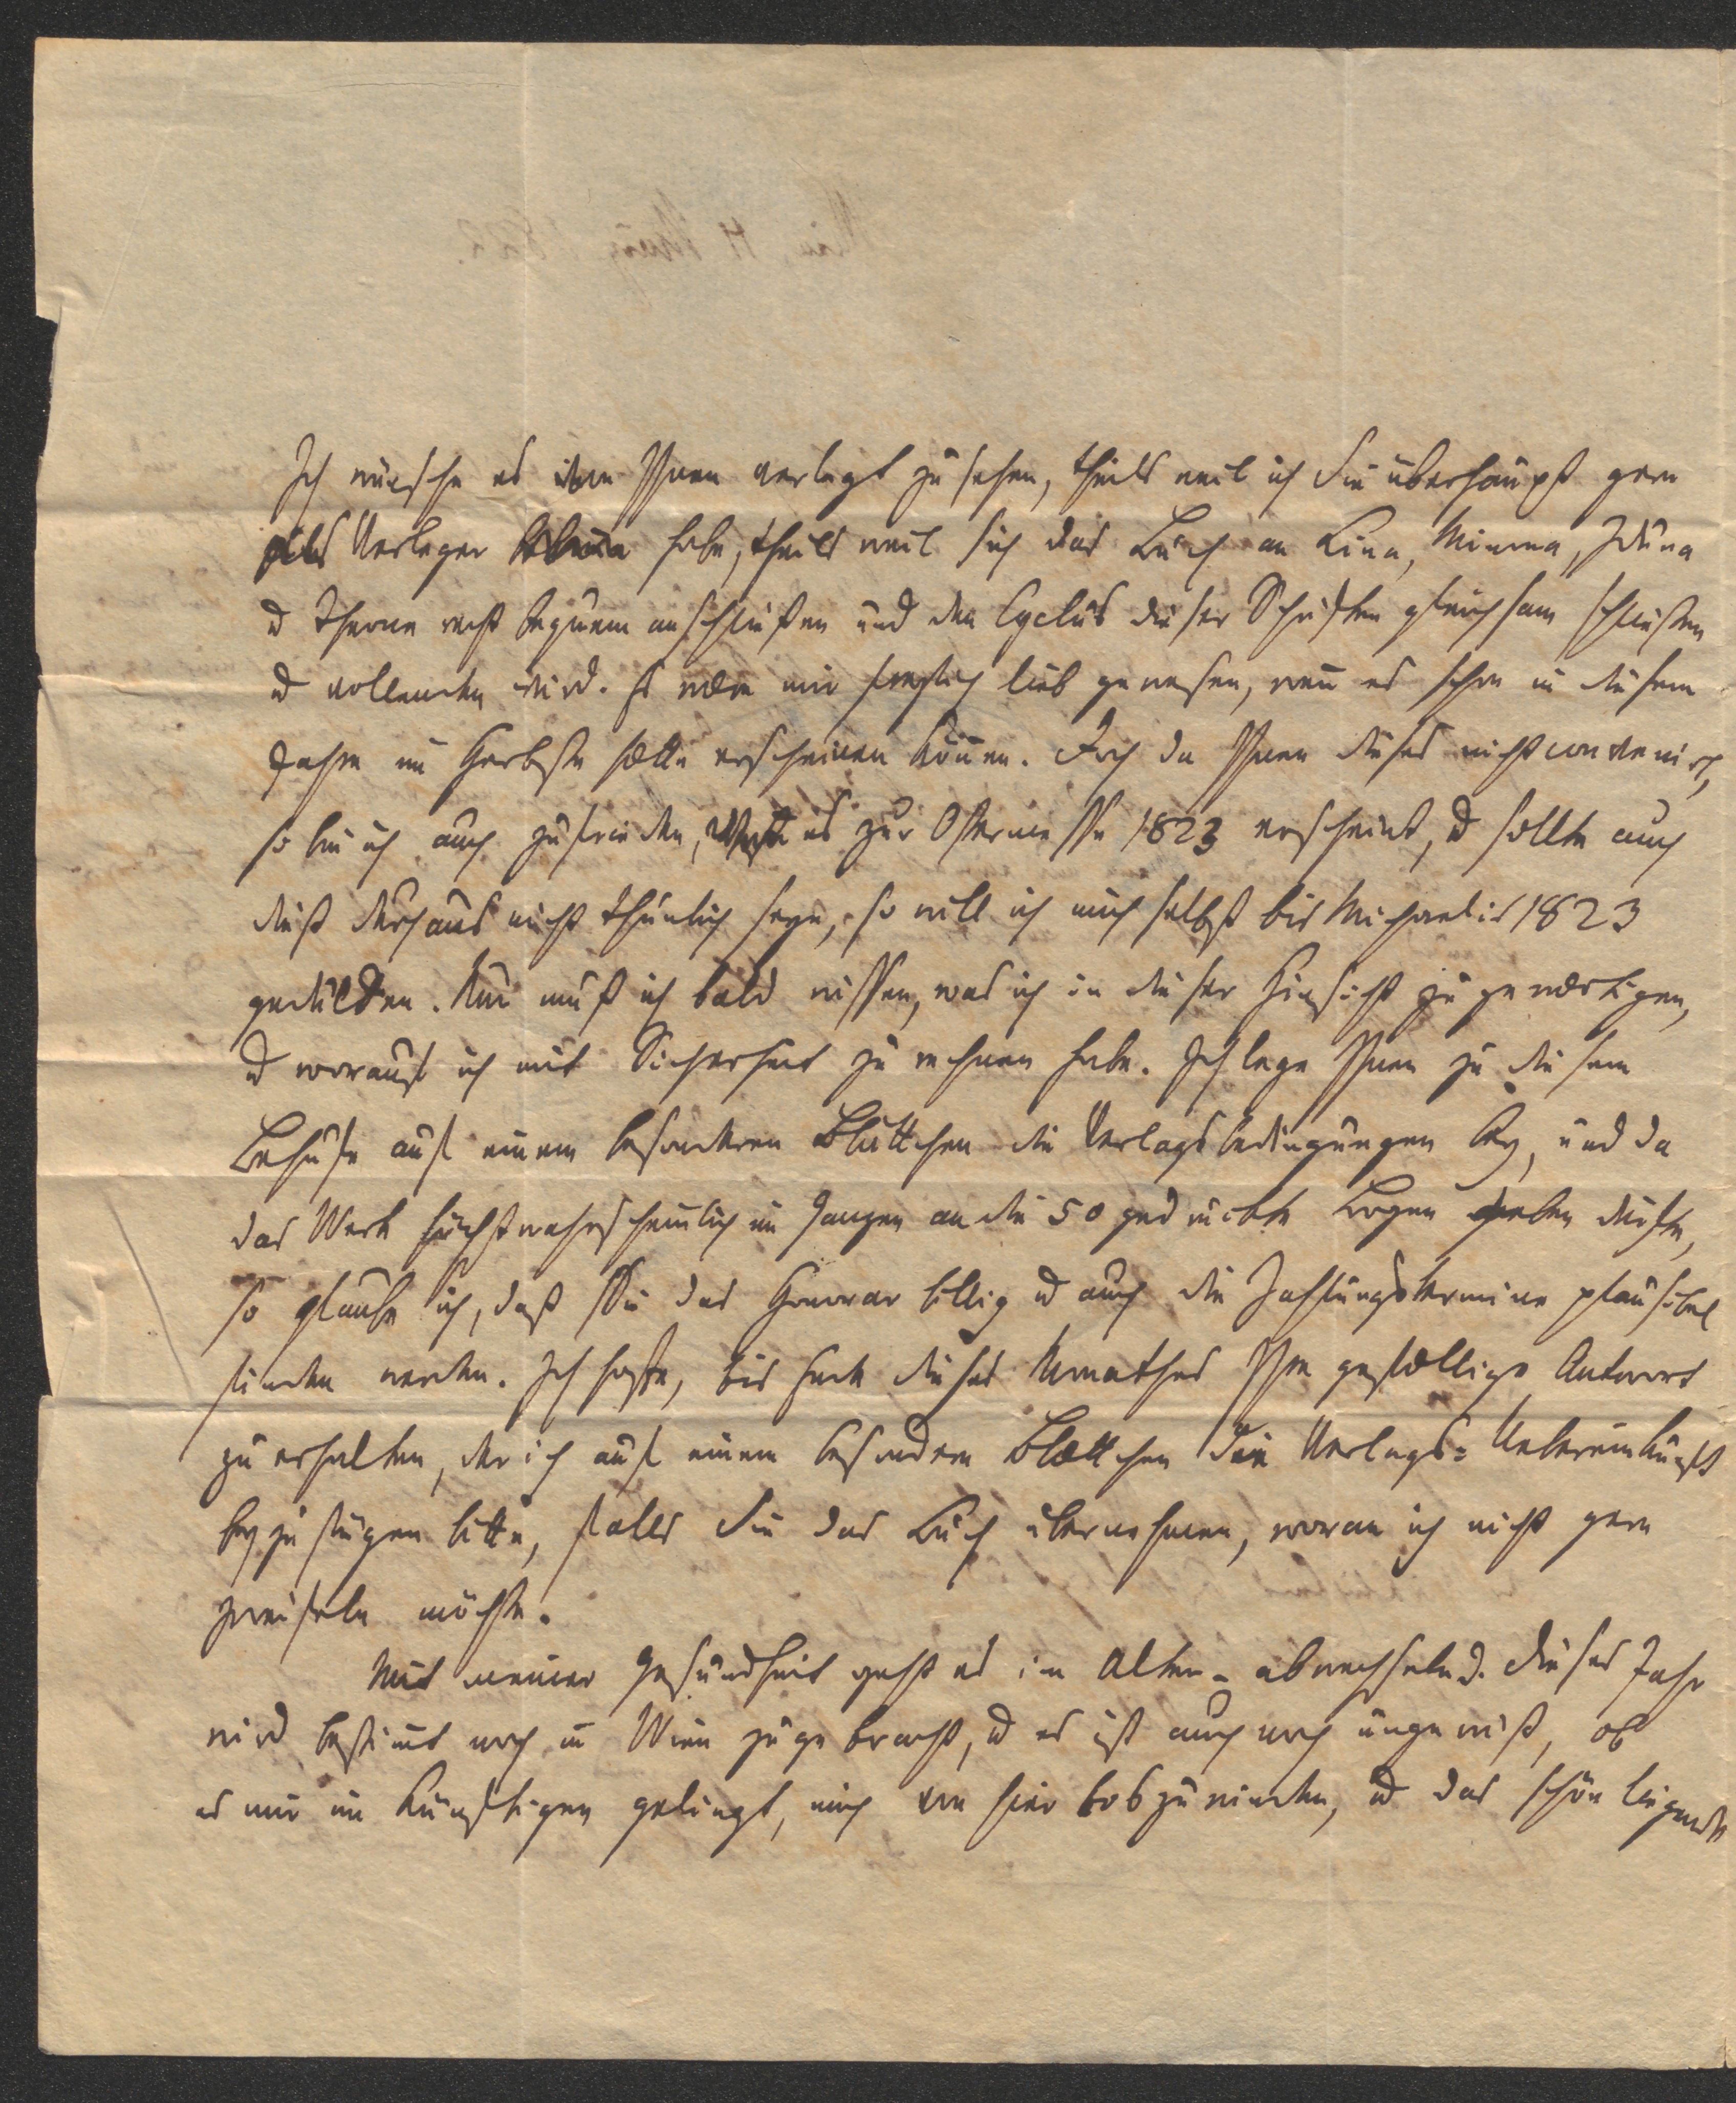 Ich wünsche es von Ihnen verlegt zu sehen, theils weil ich Sie überhaupt gern
als Verleger habe, theils weil sich das Buch an Lina, Minona, Iduna
u Theone recht bequem anschließen und den Cyclus dieser Schriften gleichsam schließen
u vollenden wird. Es wäre mir freylich lieb gewesen, wenn es schon in diesem
Jahre im Herbste hätte erscheinen können. Doch da Ihnen dieses nicht convenirt,
so bin ich auch zufrieden, es zur Ostermesse 1823 erscheint, u sollte auch
dieß durchaus nicht thunlich seyn, so will ich mich selbst bis Michaelis 1823
gedulden. Nur muß ich bald wissen, was ich in dieser Hinsicht zu gewärtigen,
u worauf ich mit Sicherheit zu rechnen habe. Ich lege Ihnen zu diesem
Behufe auf einem besonderen Blättchen die Verlagsbedingungen bey, und da
das Werk höchstwahrscheinlich im Ganzen an die 50 gedruckte Bogen geben dürfte,
so glaube ich, daß Sie das Honorar billig u auch die Zahlungstermine plausibel
finden werden. Ich hoffe, bis Ende dieses Monathes Ihre gefällige Antwort
zu erhalten, der ich auf einem besondern Blättchen die Verlags-Uebereinkunft
beyzufügen bitte, falls Sie das Buch übernehmen, woran ich nicht gern
zweifeln möchte.
Mit meiner Gesundheit geht es im Alten - abwechselnd. Dieses Jahr
wird bestimmt noch in Wien zugebracht, u es ist auch noch ungewiß, ob
es mir im Künftigen gelingt, mich von hier loszuwinden, u das schön liegende